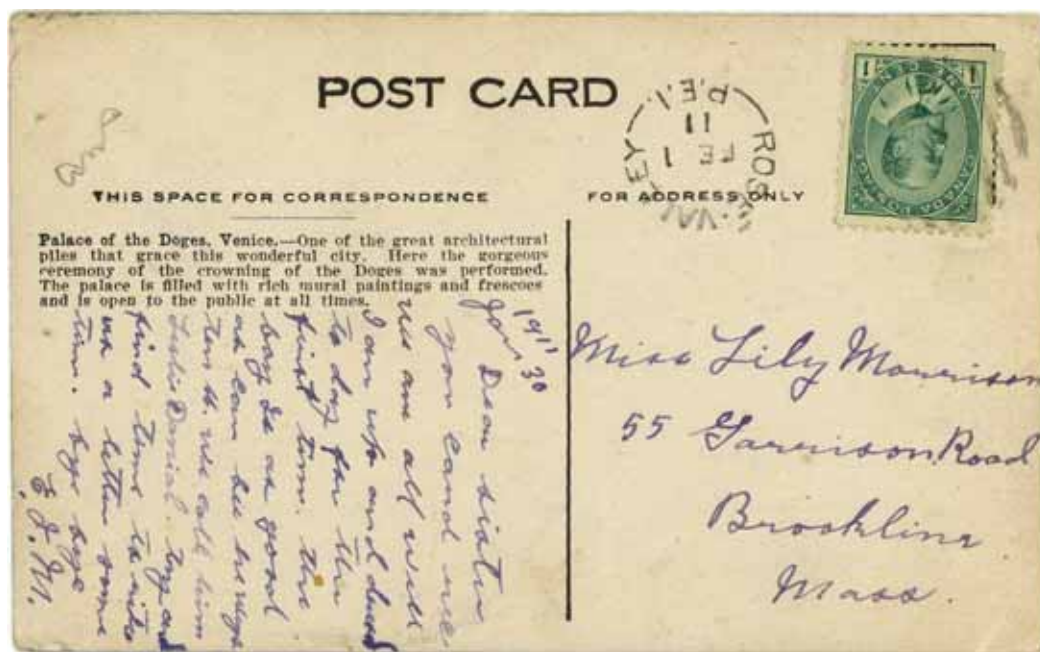 POST CARD
THIS SPACE FOR CORRESPONDENCE
FOR ADDRESS ONLY
ROSE VALLEY
FE 1
11
P.E.I.
1 1
ONE CENT
CANADA POSTAGE
Palace of the Doges, Venice.—One of the great architectural
piles that grace this wonderful city. Here the gorgeous
ceremony of the crowning of the Doges was performed.
The palace is filled with rich mural paintings and frescoes
and is open to the public at all times.
1911
Jan 30
Dear sister
your card rec
we are all well
I am up and
to day for the
first time. the
boy is as good
as can be he weighs
ten lb. we call him
Leslie Daniel. try and
find time to write
me a letter some
time. bye bye
E. J. M.
Miss Lily Morrison
55 Garrison Road
Brookline
Mass.